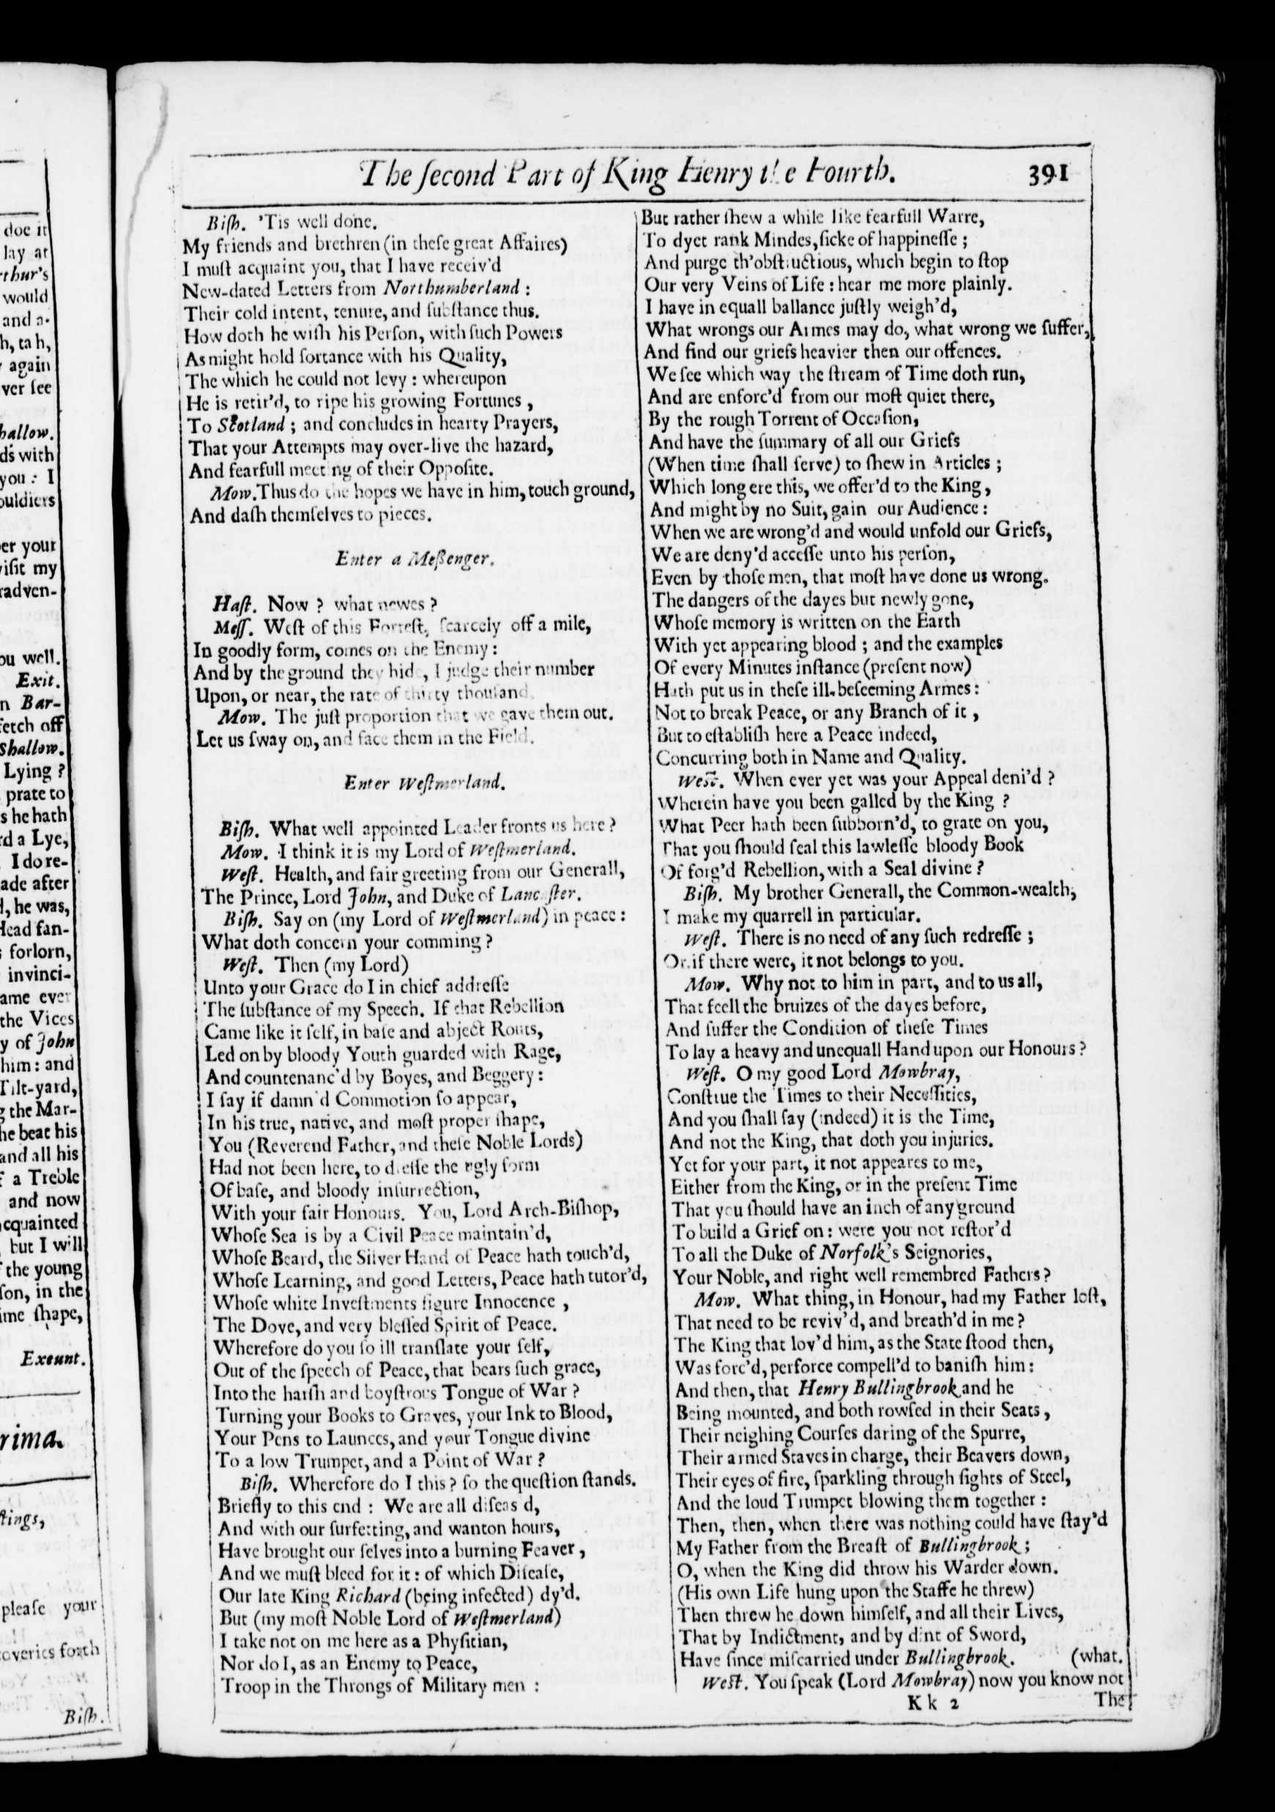 doe it
lay at
rthur's
would
and a-
h, ta h,
again
ver ſee
hallow.
ds with
you : I
ouldiers
er your
viſit my
radven-
ou well.
Exit.
n Bar-
fetch off
Shallow.
Lying ?
prate to
s he hath
rd a Lye,
I do re-
ade after
l, he was,
Head fan-
s forlorn,
invinci-
ame ever
the Vices
y of John
him : and
Tilt-yard,
g the Mar-
he beat his
and all his
f a Treble
and now
cquainted
but I will
f the young
ſon, in the
ime ſhape,
Exeunt.
rima.
ſtings,
pleaſe your
overies forth
Biſh.
The ſecond Part of King Henry the Fourth. 391
Biſh. 'Tis well done.
My friends and brethren (in theſe great Affaires)
I muſt acquaint you, that I have receiv'd
New-dated Letters from Northumberland :
Their cold intent, tenure, and ſubſtance thus.
How doth he wiſh his Perſon, with ſuch Powers
As might hold ſortance with his Quality,
The which he could not levy : whereupon
He is retir'd, to ripe his growing Fortunes ,
To Scotland ; and concludes in hearty Prayers,
That your Attempts may over-live the hazard,
And fearfull meeting of their Oppoſite.
Mow. Thus do the hopes we have in him, touch ground,
And daſh themſelves to pieces.
Enter a Meſſenger.
Haſt. Now ? what newes ?
Meſſ. Weſt of this Forreſt, ſcarcely off a mile,
In goodly form, comes on the Enemy :
And by the ground they hide, I judge their number
Upon, or near, the rate of thirty thouſand.
Mow. The juſt proportion that we gave them out.
Let us ſway on, and face them in the Field.
Enter Weſtmerland.
Biſh. What well appointed Leader fronts us here ?
Mow. I think it is my Lord of Weſtmerland.
Weſt. Health, and fair greeting from our Generall,
The Prince, Lord John, and Duke of Lancaſter.
Biſh. Say on (my Lord of Weſtmerland) in peace :
What doth concern your comming ?
Weſt. Then (my Lord)
Unto your Grace do I in chief addreſſe
The ſubſtance of my Speech. If that Rebellion
Came like it ſelf, in baſe and abject Routs,
Led on by bloody Youth guarded with Rage,
And countenanc'd by Boyes, and Beggery :
I ſay if damn'd Commotion ſo appear,
In his true, native, and moſt proper ſhape,
You (Reverend Father, and theſe Noble Lords)
Had not been here, to dreſſe the ugly form
Of baſe, and bloody inſurrection,
With your fair Honours. You, Lord Arch-Biſhop,
Whoſe Sea is by a Civil Peace maintain'd,
Whoſe Beard, the Silver Hand of Peace hath touch'd,
Whoſe Learning, and good Letters, Peace hath tutor'd,
Whoſe white Inveſtments figure Innocence ,
The Dove, and very bleſſed Spirit of Peace.
Wherefore do you ſo ill tranſlate your ſelf,
Out of the ſpeech of Peace, that bears ſuch grace,
Into the harſh and boyſtrous Tongue of War ?
Turning your Books to Graves, your Ink to Blood,
Your Pens to Launces, and your Tongue divine
To a low Trumpet, and a Point of War ?
Biſh. Wherefore do I this ? ſo the queſtion ſtands.
Briefly to this end : We are all diſeas'd,
And with our ſurfetting, and wanton hours,
Have brought our ſelves into a burning Feaver ,
And we muſt bleed for it : of which Diſeaſe,
Our late King Richard (being infected) dy'd.
But (my moſt Noble Lord of Weſtmerland)
I take not on me here as a Phyſitian,
Nor do I, as an Enemy to Peace,
Troop in the Throngs of Military men :
But rather ſhew a while like fearfull Warre,
To dyet rank Mindes, ſicke of happineſſe ;
And purge th'obſtructious, which begin to ſtop
Our very Veins of Life : hear me more plainly.
I have in equall ballance juſtly weigh'd,
What wrongs our Armes may do, what wrong we ſuffer,
And find our griefs heavier then our offences.
We ſee which way the ſtream of Time doth run,
And are enforc'd from our moſt quiet there,
By the rough Torrent of Occaſion,
And have the ſummary of all our Griefs
(When time ſhall ſerve) to ſhew in Articles ;
Which long ere this, we offer'd to the King ,
And might by no Suit, gain our Audience :
When we are wrong'd and would unfold our Griefs,
We are deny'd acceſſe unto his perſon,
Even by thoſe men, that moſt have done us wrong.
The dangers of the dayes but newly gone,
Whoſe memory is written on the Earth
With yet appearing blood ; and the examples
Of every Minutes inſtance (preſent now)
Hath put us in theſe ill-beſeeming Armes :
Not to break Peace, or any Branch of it ,
But to eſtabliſh here a Peace indeed,
Concurring both in Name and Quality.
Weſt. When ever yet was your Appeal deni'd ?
Wherein have you been galled by the King ?
What Peer hath been ſubborn'd, to grate on you,
That you ſhould ſeal this lawleſſe bloody Book
Of forg'd Rebellion, with a Seal divine ?
Biſh. My brother Generall, the Common-wealth,
I make my quarrell in particular.
Weſt. There is no need of any ſuch redreſſe ;
Or if there were, it not belongs to you.
Mow. Why not to him in part, and to us all,
That feell the bruizes of the dayes before,
And ſuffer the Condition of theſe Times
To lay a heavy and unequall Hand upon our Honours ?
Weſt. O my good Lord Mowbray,
Conſtrue the Times to their Neceſſities,
And you ſhall ſay (indeed) it is the Time,
And not the King, that doth you injuries.
Yet for your part, it not appeares to me,
Either from the King, or in the preſent Time
That you ſhould have an inch of any ground
To build a Grief on : were you not reſtor'd
To all the Duke of Norfolk's Seignories,
Your Noble, and right well remembred Fathers ?
Mow. What thing, in Honour, had my Father loſt,
That need to be reviv'd, and breath'd in me ?
The King that lov'd him, as the State ſtood then,
Was forc'd, perforce compell'd to baniſh him :
And then, that Henry Bullingbrook and he
Being mounted, and both rowſed in their Seats ,
Their neighing Courſes daring of the Spurre,
Their armed Staves in charge, their Beavers down,
Their eyes of fire, ſparkling through ſights of Steel,
And the loud Trumpet blowing them together :
Then, then, when there was nothing could have ſtay'd
My Father from the Breaſt of Bullingbrook ;
O, when the King did throw his Warder down.
(His own Life hung upon the Staffe he threw)
Then threw he down himſelf, and all their Lives,
That by Indictment, and by dint of Sword,
Have ſince miſcarried under Bullingbrook. (what.
Weſt. You ſpeak (Lord Mowbray) now you know not
Kk 2 The